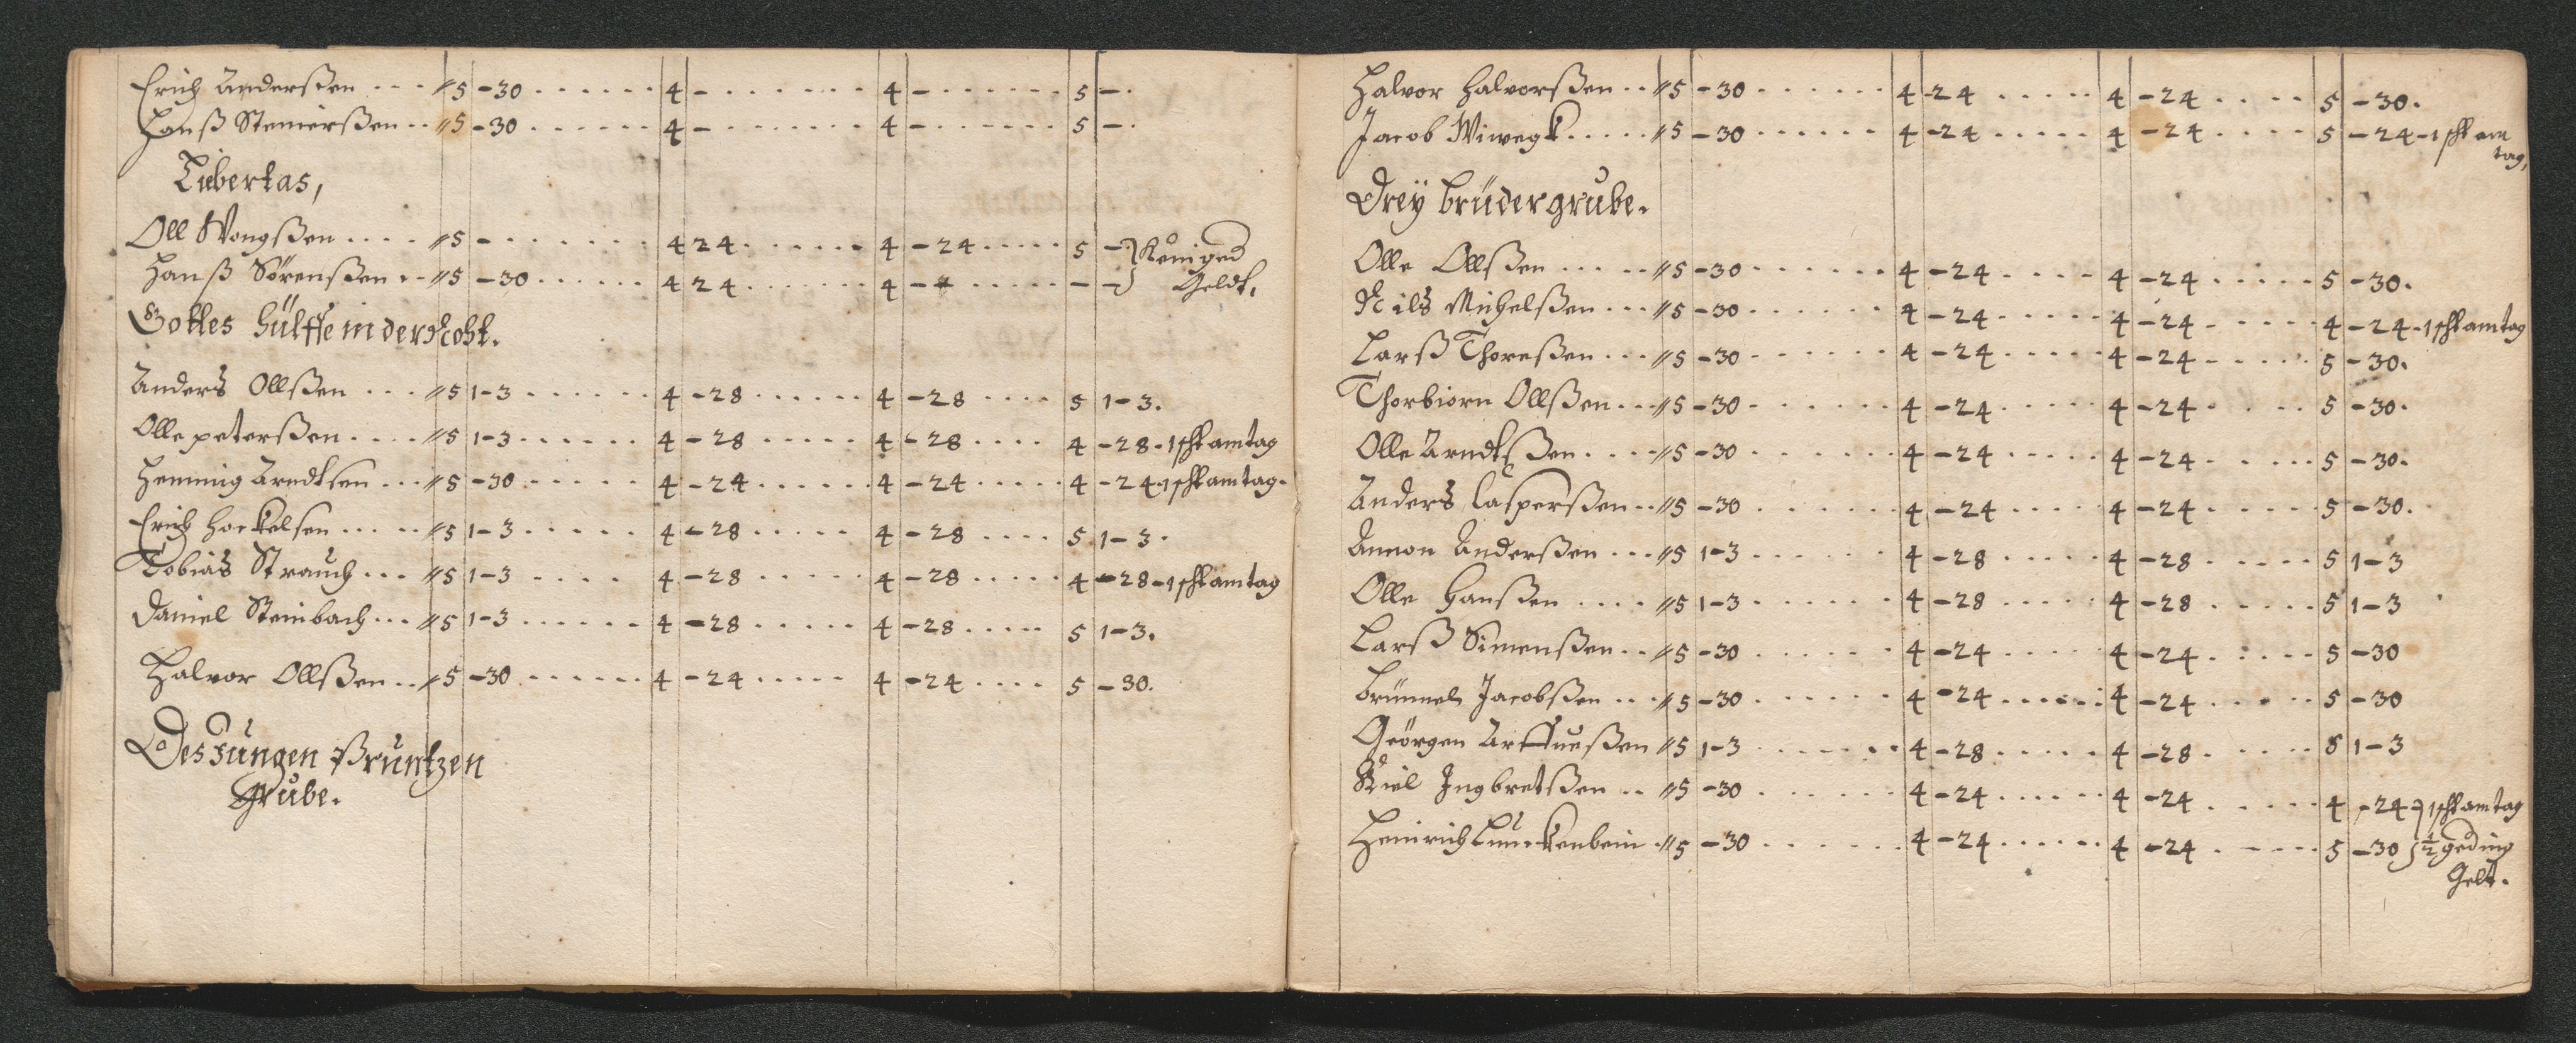 Erich Anderßen ... // 5 - 30 ...... 4 - ....... 4 - ....... 5 - .
Hanß Steinerßen .. // 5 - 30 ...... 4 - ....... 4 - ....... 5 - .
Libertas,
Oll Wongßen .... // 5 - ....... 4 24 ...... 4 - 24 ..... 5 -
Hanß Sörenßen .. // 5 - 30 ...... 4 24 ....... 4 - ..... - -
Geldt.
Gottes hülffe in der Noht.
Anders Ollßen ... // 5 1 - 3 ...... 4 - 28 ...... 4 - 28 .... 5 1 - 3.
Olle peterßen .... // 5 1 - 3 ...... 4 - 28 ..... 4 - 28 .... 4 - 28 - 1 scht am tag
Hemmig Arndtsen ... // 5 - 30 ...... 4 - 24 ...... 4 - 24 ..... 4 - 24 - 1 scht am tag.
Erich Horkelsen ..... // 5 1 - 3 ...... 4 - 28 ..... 4 - 28 .... 5 1 - 3.
Tobias Strauch ... // 5 1 - 3 .... 4 - 28 ...... 4 - 28 ..... 4 - 28 - 1 scht am tag
Daniel Steinbach ... // 5 1 - 3 ...... 4 - 28 ..... 4 - 28 ..... 5 1 - 3.
Halvor Ollßen .. // 5 - 30 ...... 4 - 24 ..... 4 - 24 .... 5 - 30.
Des Jungen Printzen
Grube.
Halvor Halvorßen .. // 5 - 30 ...... 4 - 24 ..... 4 - 24 .... 5 - 30.
Jacob Wiwegk ..... // 5 - 30 ...... 4 - 24 ..... 4 - 24 ..... 5 - 24 - 1 scht am
tag,
Dreÿ brüder grube.
Olle Ollßen ..... // 5 - 30 ...... 4 - 24 .... 4 - 24 ..... 5 - 30.
Nils Michelßen ... // 5 - 30 ...... 4 - 24 ..... 4 - 24 ..... 4 - 24 - 1 scht am tag
Larß Thoreßen ... // 5 - 30 ...... 4 - 24 ..... 4 - 24 ..... 5 - 30.
Thorbiorn Ollßen ... // 5 - 30 ...... 4 - 24 ..... 4 - 24 .... 5 - 30.
Olle Arndtßen .... // 5 - 30 ...... 4 - 24 ..... 4 - 24 ..... 5 - 30.
Anders Casperßen .. // 5 - 30 ...... 4 - 24 ..... 4 - 24 ..... 5 - 30.
Amon Anderßen ... // 5 1 - 3 ...... 4 - 28 ..... 4 - 28 ..... 5 1 - 3
Olle Hanßen .... // 5 1 - 3 ...... 4 - 28 ..... 4 - 28 ..... 5 1 - 3
Larß Simenßen .. // 5 - 30 ...... 4 - 24 ..... 4 - 24 ..... 5 - 30
Jacobßen .. // 5 - 30 ...... 4 - 24 ...... 4 - 24 ..... 5 - 30
Geörgen // 5 1 - 3 ...... 4 - 28 ..... 4 - 28 ..... 5 1 - 3
Kiel Ingbretßen .. // 5 - 30 ...... 4 - 24 ...... 4 - 24 ..... 4 - 24 - 1 scht am tag
Heinrich . // 5 - 30 ...... 4 - 24 ...... 4 - 24 ..... 5 - 30 ½ geding
Gelt.